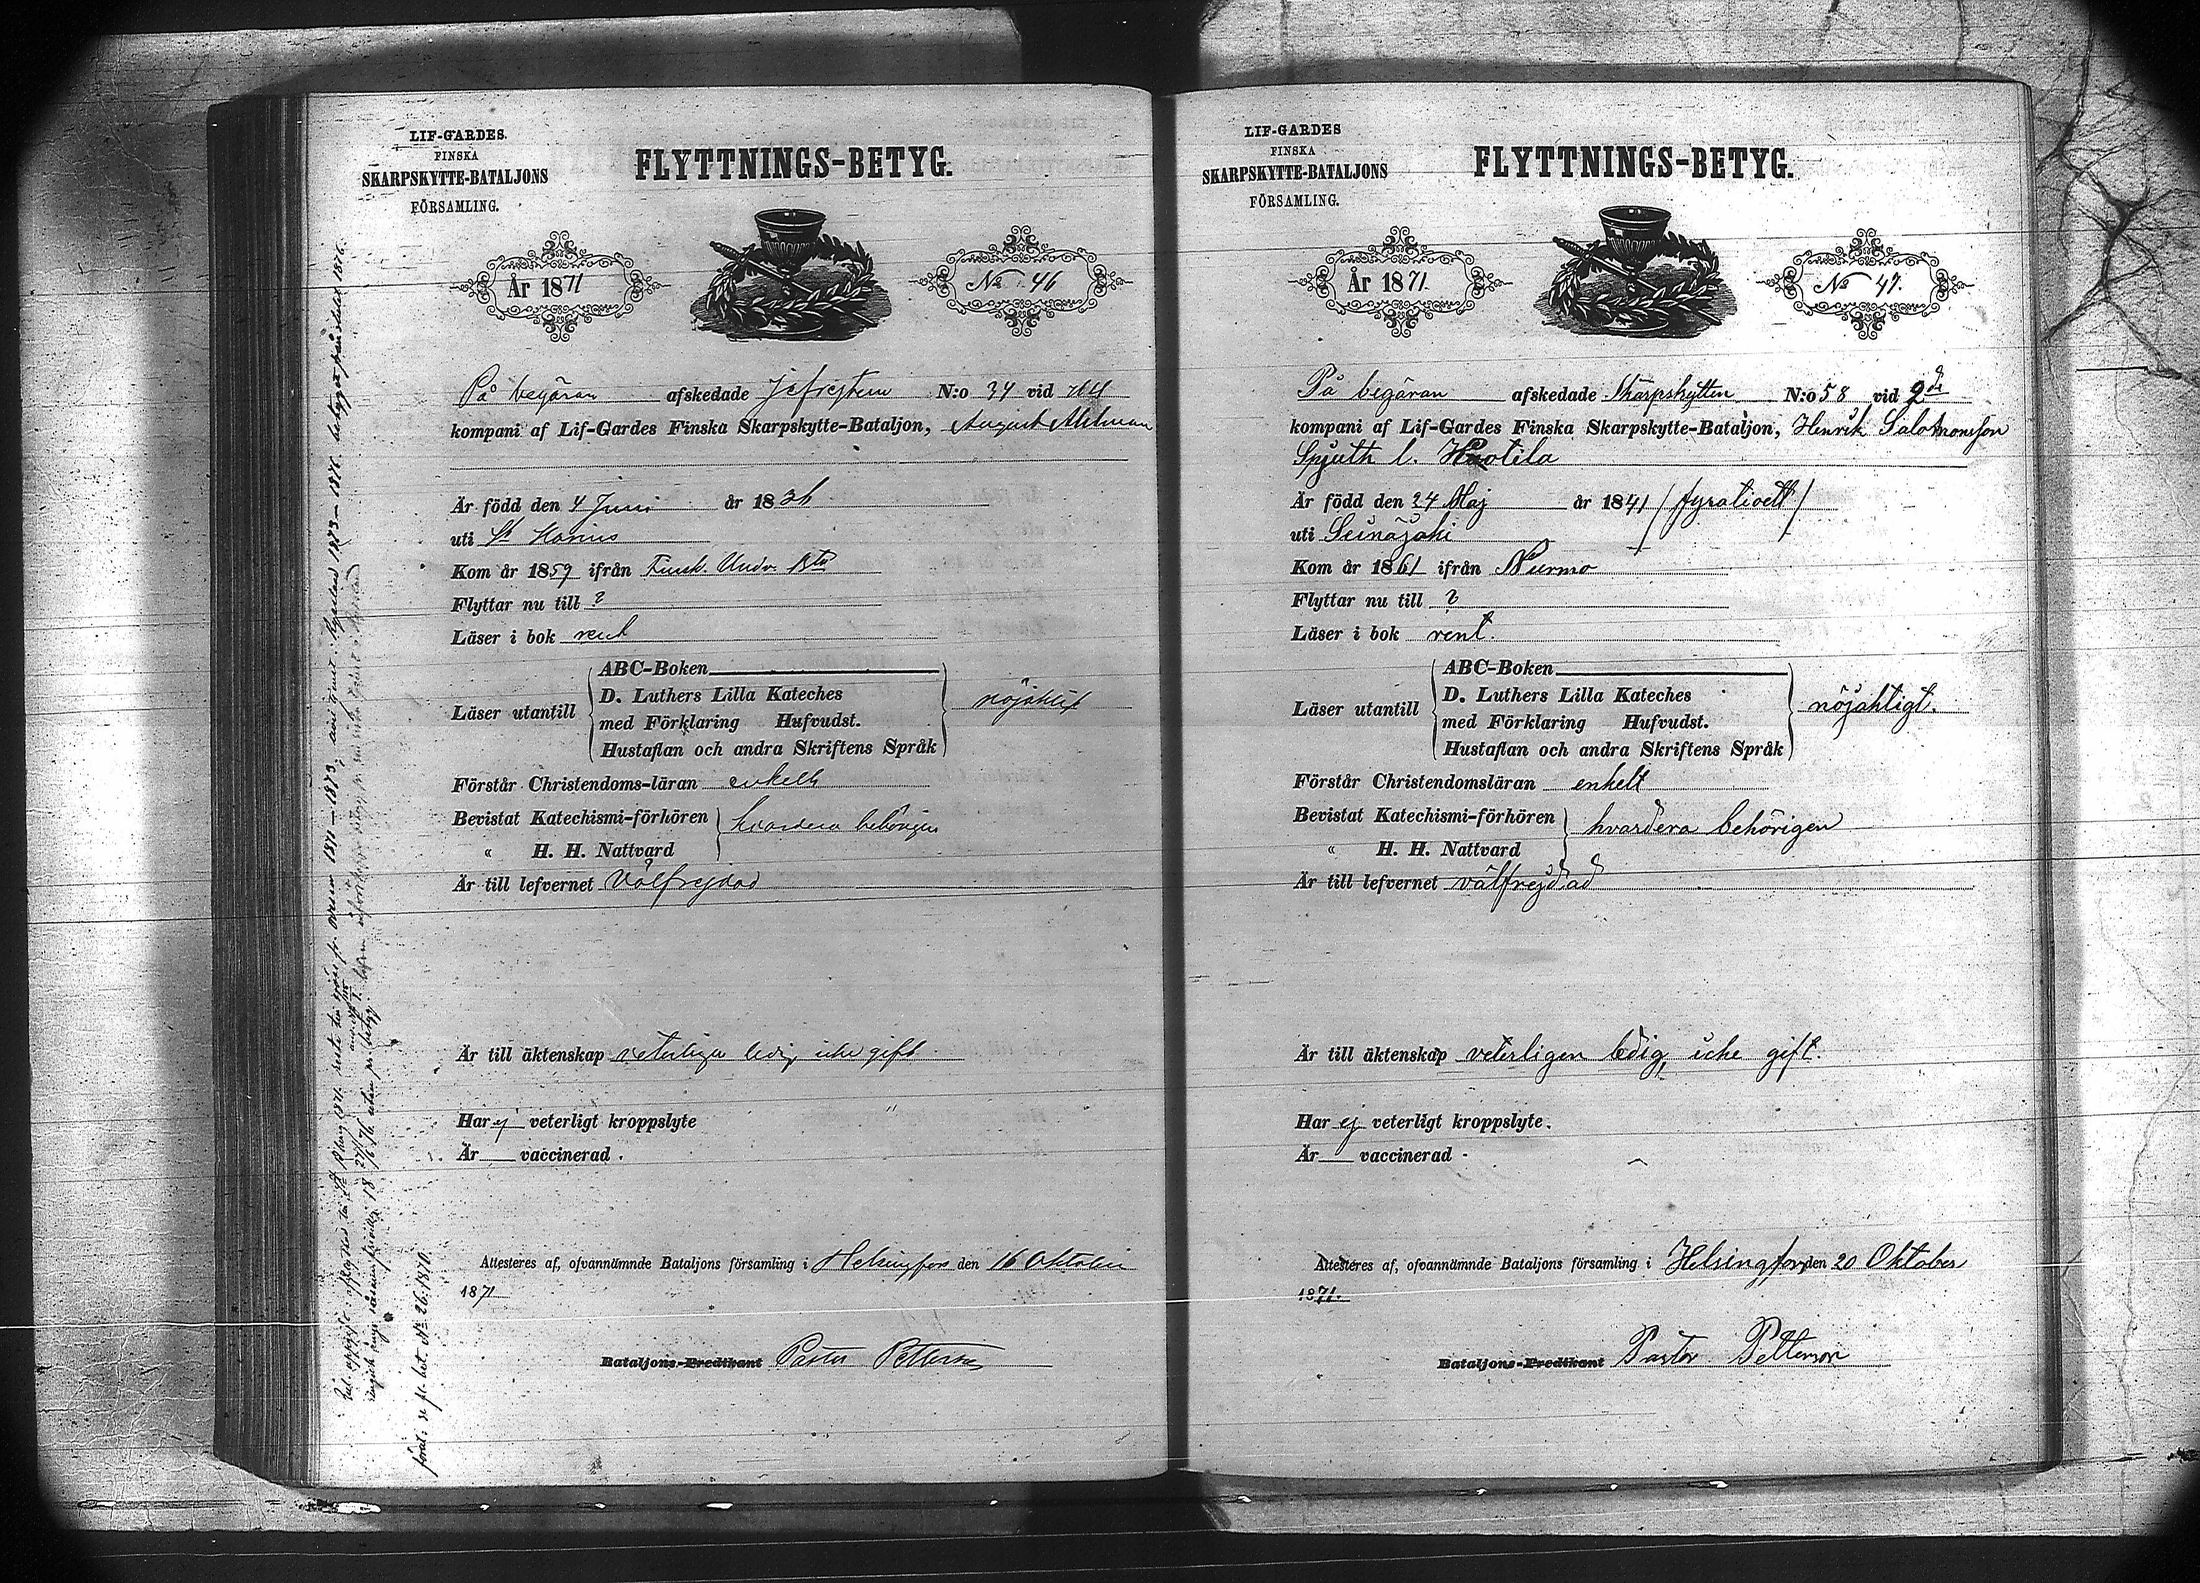 LIF-GARDES
FINSKA
SKARPSKYTTE-BATALJONS
FÖRSAMLING.
FLYTTNINGS-BETYG.
År 1871
No 46
På begäran afskedade N:o 34 vid
kompani af Lif-Gardes Finska Skarpskytte-Bataljon, August Ahlman
Är född den 4 Juni år 1836
uti St Marins
Kom år 1859 ifrån Finsk. Undv. Bta
Flyttar nu till ?
Läser i bok rent
Läser utantill
ABC-Boken
D. Luthers Lilla Kateches
med Förklaring Hufvudst.
Hustaflan och andra Skriftens Språk
nöjaktigt
Förstår Christendoms-läran enkelt
Bevistat Katechismi-förhören
« H. H. Nattvard
hvardera behörigen
Är till lefvernet Välfrejdad
Är till äktenskap veterligen ledig icke gift
Har ej veterligt kroppslyte
Är vaccinerad.
Attesteres af, ofvannämnde Bataljons församling i Helsingfors den 16 Oktober
1871
Bataljons-Predikant Pastor Petterson
förut, se fl. bet. No 26. 1870.
LIF-GARDES
FINSKA
SKARPSKYTTE-BATALJONS
FÖRSAMLING.
FLYTTNINGS-BETYG.
År 1871
No 47.
På begäran afskedade Skarpskytten N:o 58 vid 2de
kompani af Lif-Gardes Finska Skarpskytte-Bataljon, Henrik Salomonsson
Spjuth l. Huotila
Är född den 24 Maj år 1841 /fyratioett/
uti Seinäjoki
Kom år 1861 ifrån Nurmo
Flyttar nu till ?
Läser i bok rent.
Läser utantill
ABC-Boken
D. Luthers Lilla Kateches
med Förklaring Hufvudst.
Hustaflan och andra Skriftens Språk
nöjaktigt.
Förstår Christendomsläran enkelt
Bevistat Katechismi-förhören
« H. H. Nattvard
hvardera behörigen
Är till lefvernet välfrejdad
Är till äktenskap veterligen ledig, icke gift.
Har ej veterligt kroppslyte.
Är vaccinerad.
Attesteres af, ofvannämnde Bataljons församling i Helsingfors den 20 Oktober
1871.
Bataljons-Predikant Pastor Petterson